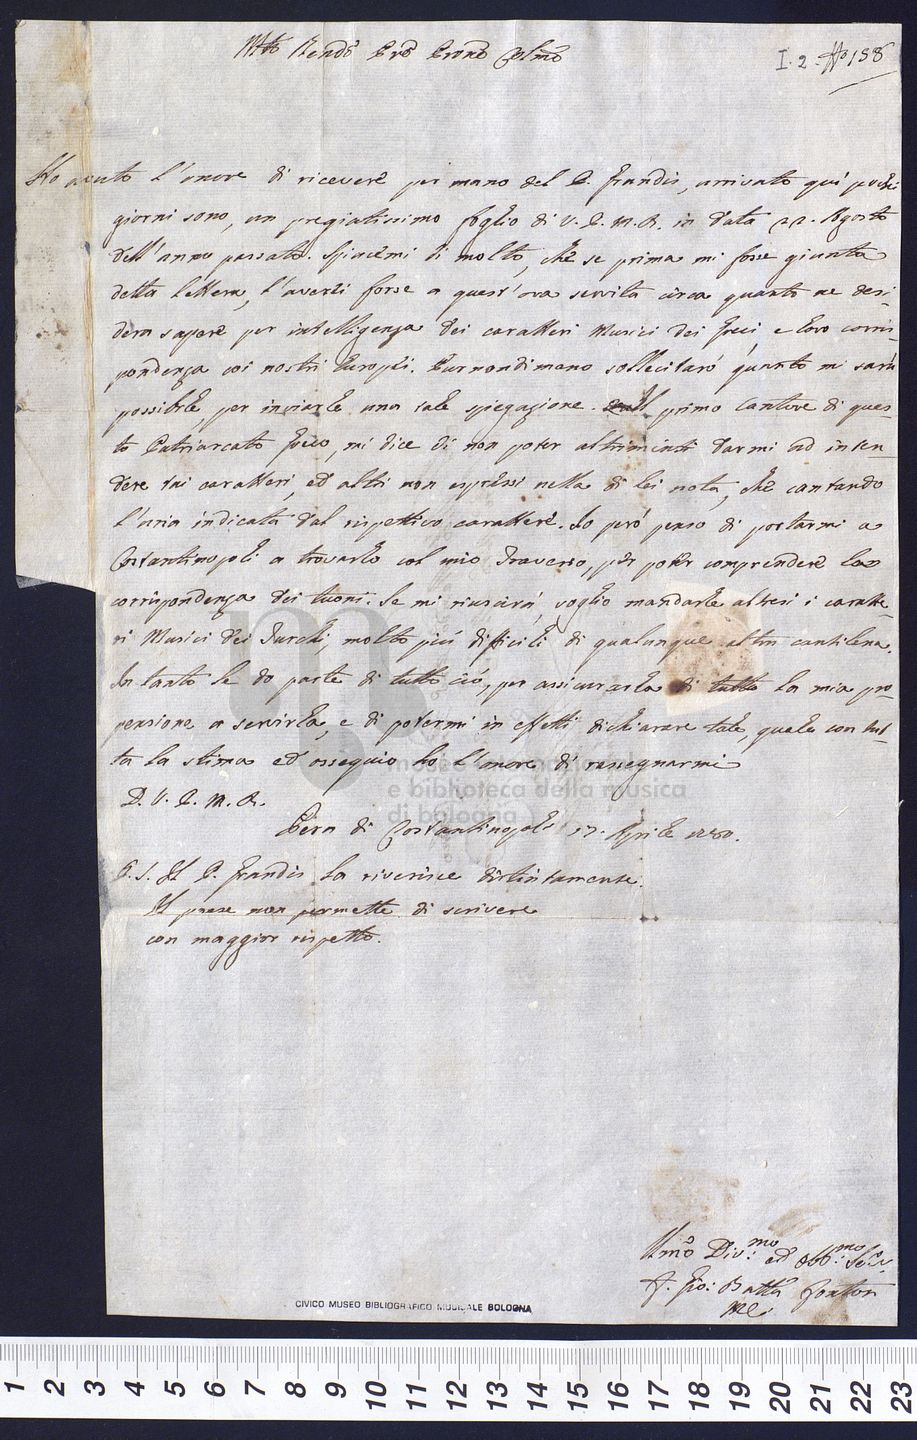 Mto Rendo Pre Prone Colmo
I. 2. No 138
Ho avuto l'onore di ricevere per mano del P. Grandis, arrivato quì pochi
giorni sono, un pregiatissimo foglio di V. P. M. R. in data 22. Agosto
dell'anno passato. Spiacemi di molto, che se prima mi fosse giunta
detta lettera, l'averei forse a quest'ora servita circa quanto ne desi-
dera sapere per intelligenza dei caratteri Musici dei Greci, e loro corris-
pondenza coi nostri Europei. Purnondimeno sollecitarò quanto mi sarà
possibile per inviarle una tale spiegazione. Il primo Cantore di ques-
to Patriarcato Greco, mi dice di non poter altrimenti darmi ad inten-
dere tai caratteri, ed altri non espressi nella di lei nota, che cantando
l'aria indicata dal rispettivo carattere. Io però penso di portarmi a
Costantinopoli a trovarlo col mio Traverso, per poter comprendere la
corrispondenza dei tuoni. Se mi riuscirà, voglio mandarle altresì i caratte-
ri Musici dei Turchi, molto più difficili di qualunque altra cantilena.
In tanto le do parte di tutto ciò, per assicurarla di tutta la mia pro-
pensione a servirla, e di potermi in effetti dichiarare tale, quale con tut-
ta la stima ed ossequio ho l'onore di rassegnarmi
D. V. P. M. R.
Pera di Costantinopoli 17. Aprile 1750.
P. S. Il P. Grandis la riverisce distintamente.
Il paese non permette di scrivere
con maggior rispetto.
museo internazionale
e biblioteca della musica
di bologna
Umo Div.mo ed Obb.mo Serv.
F. Gio: Batta Fonton
CIVICO MUSEO BIBLIOGRAFICO MUSICALE BOLOGNA
1 2 3 4 5 6 7 8 9 10 11 12 13 14 15 16 17 18 19 20 21 22 23